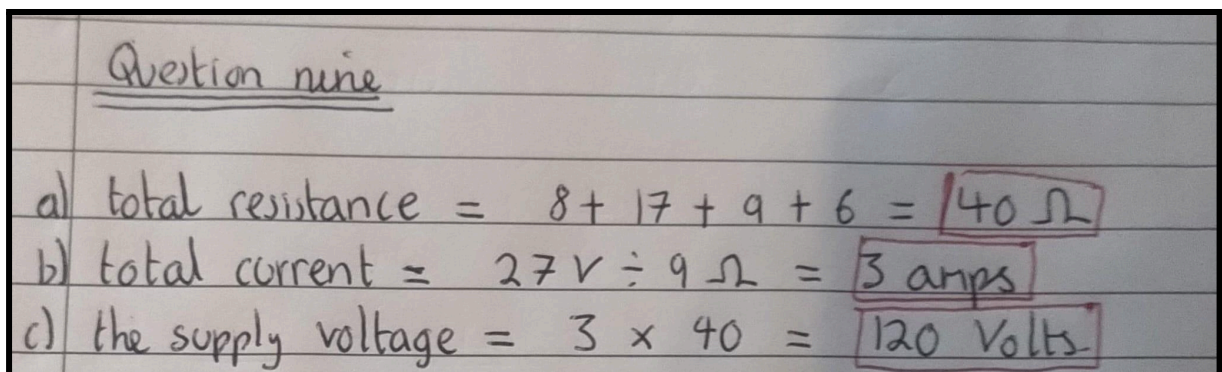 Question nine
a) total resistance = 8 + 17 + 9 + 6 = 40 Ω
b) total current = 27 V ÷ 9 Ω = 3 amps
c) the supply voltage = 3 x 40 = 120 Volts